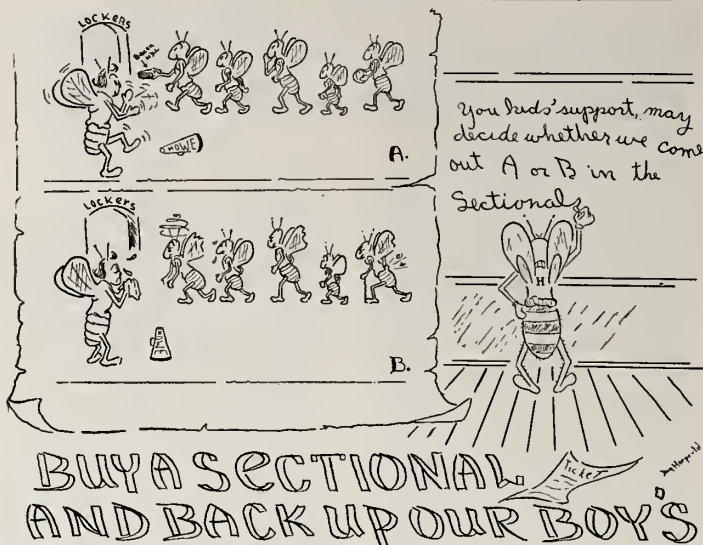 LOCKERS
HOWE
A.
LOCKERS
B.
You kids' support, may
decide whether we come
out A or B in the
Sectional
H
BUY A SECTIONAL
Ticket
AND BACK UP OUR BOY'S